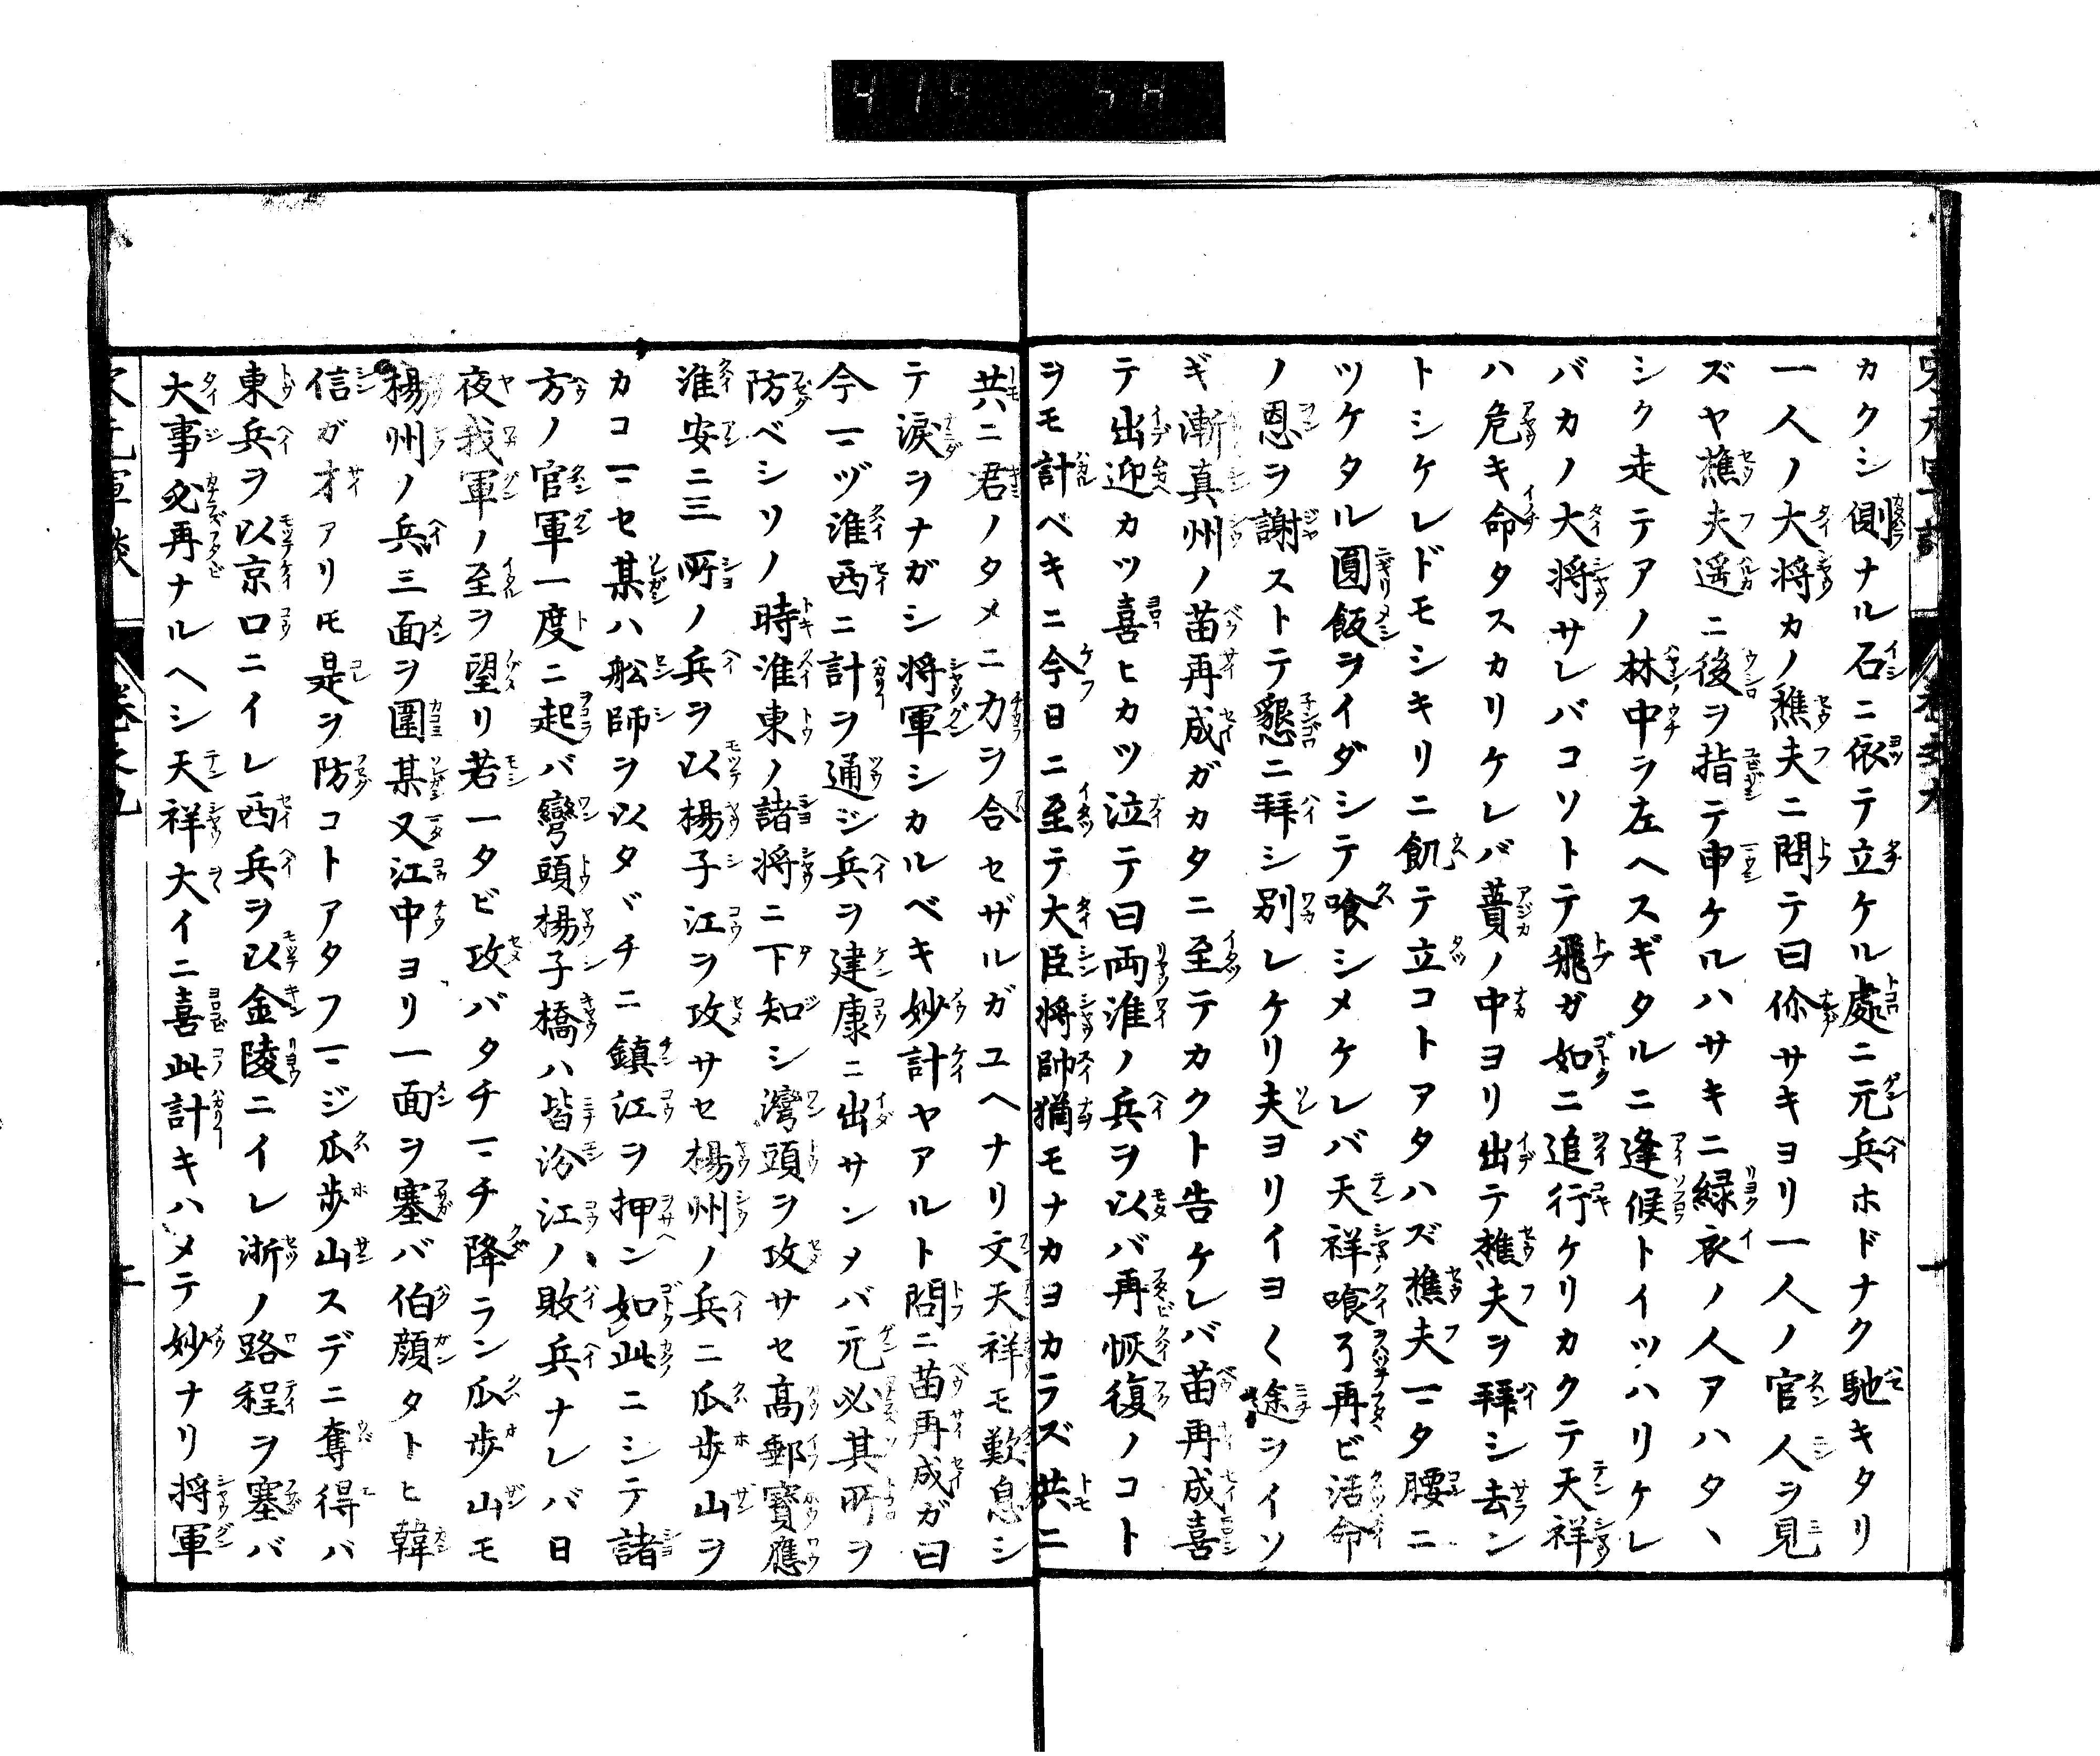 カクシ側ナル石ニ依テ立ケル處ニ元兵ホドナク馳キタリ
一人ノ大将カノ樵夫ニ問テ曰伱サキヨリ一人ノ官人ヲ見
ズヤ樵夫遥ニ後ヲ指テ申ケルハサキニ緑衣ノ人アハタヽ
シク走テアノ林中ヲ左ヘスギタルニ逢候トイツハリケレ
バカノ大将サレバコソトテ飛ガ如ニ追行ケリカクテ天祥
ハ危キ命タスカリケレバ蕢ノ中ヨリ出テ樵夫ヲ拜シ去ン
トシケレドモシキリニ飢テ立コトアタハズ樵夫マタ腰ニ
ツケタル圓飯ヲイダシテ喰シメケレバ天祥喰了再ビ活命
ノ恩ヲ謝ストテ懇ニ拜シ別レケリ夫ヨリイヨ〱途ヲイソ
ギ漸真州ノ苗再成ガカタニ至テカクト告ケレバ苗再成喜
テ出迎カツ喜ヒカツ泣テ曰両淮ノ兵ヲ以バ再恢復ノコト
ヲモ計ベキニ今日ニ至テ大臣将帥猶モナカヨカラズ共ニ
共ニ君ノタメニ力ヲ合セザルガユヘナリ文天祥モ歎息シ
テ涙ヲナガシ将軍シカルベキ妙計ヤアルト問ニ苗再成ガ曰
今マヅ淮西ニ計ヲ通ジ兵ヲ建康ニ出サンタバ元必其所ヲ
防ベシソノ時淮東ノ諸将ニ下知シ灣頭ヲ攻サセ高郵寳應
淮安ニ三所ノ兵ヲ以楊子江ヲ攻サセ楊州ノ兵ニ瓜歩山ヲ
カコマセ某ハ舩師ヲ以タヾチニ鎮江ヲ押ン如此ニシテ諸
方ノ官軍一度ニ起バ彎頭楊子橋ハ皆沿江ノ敗兵ナレバ日
夜我軍ノ至ヲ望リ若一タビ攻バタチマチ降ラン瓜歩山モ
楊州ノ兵三面ヲ圍某又江中ヨリ一面ヲ塞バ伯顔タトヒ韓
信ガ才アリ𪜈是ヲ防コトアタフマジ瓜歩山スデニ奪得バ
東兵ヲ以京口ニイレ西兵ヲ以金陵ニイレ浙ノ路程ヲ塞バ
大事必再ナルヘシ天祥大イニ喜此計キハメテ妙ナリ将軍